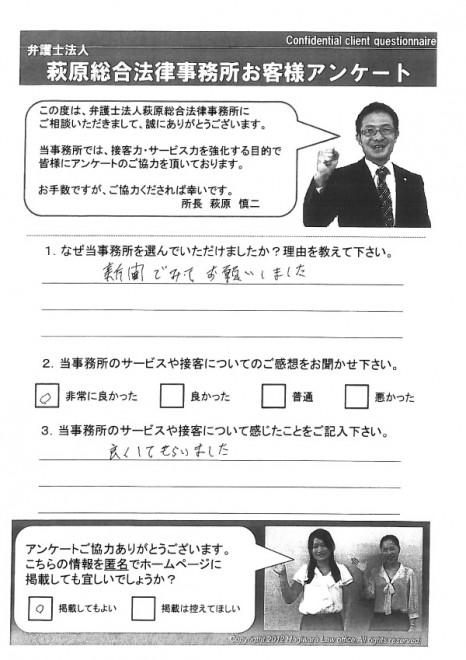 Confidential client questionnaire
弁護士法人
萩原総合法律事務所お客様アンケート
この度は、弁護士法人萩原総合法律事務所に
ご相談いただきまして、誠にありがとうございます。
当事務所では、接客力・サービス力を強化する目的で
皆様にアンケートのご協力を頂いております。
お手数ですが、ご協力くだされば幸いです。
所長 萩原 慎二
1．なぜ当事務所を選んでいただけましたか？理由を教えて下さい。
新聞でみてお願いしました
2．当事務所のサービスや接客についてのご感想をお聞かせ下さい。
○ 非常に良かった 良かった 普通 悪かった
3．当事務所のサービスや接客について感じたことをご記入下さい。
良くしてもらいました
アンケートご協力ありがとうございます。
こちらの情報を匿名でホームページに
掲載しても宜しいでしょうか？
○ 掲載してもよい 掲載は控えてほしい
Copyright 2012 Hagiwara Law office All rights reserved.